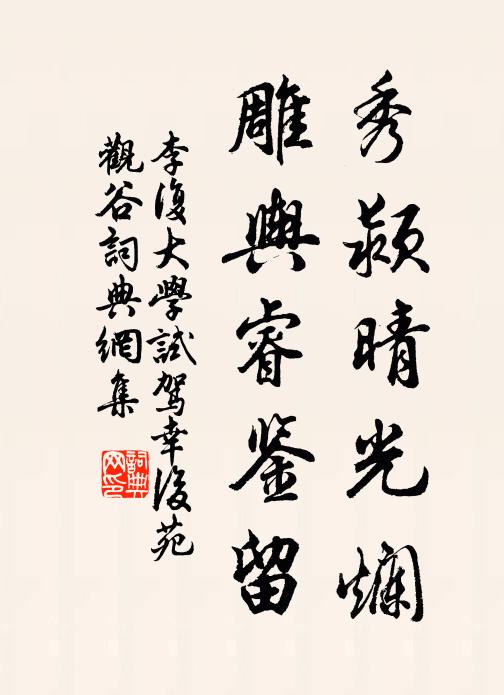 秀颖晴光爛
雕輿睿鉴留
李復大學試駕幸後苑
觀谷詞典網集
詞典网印